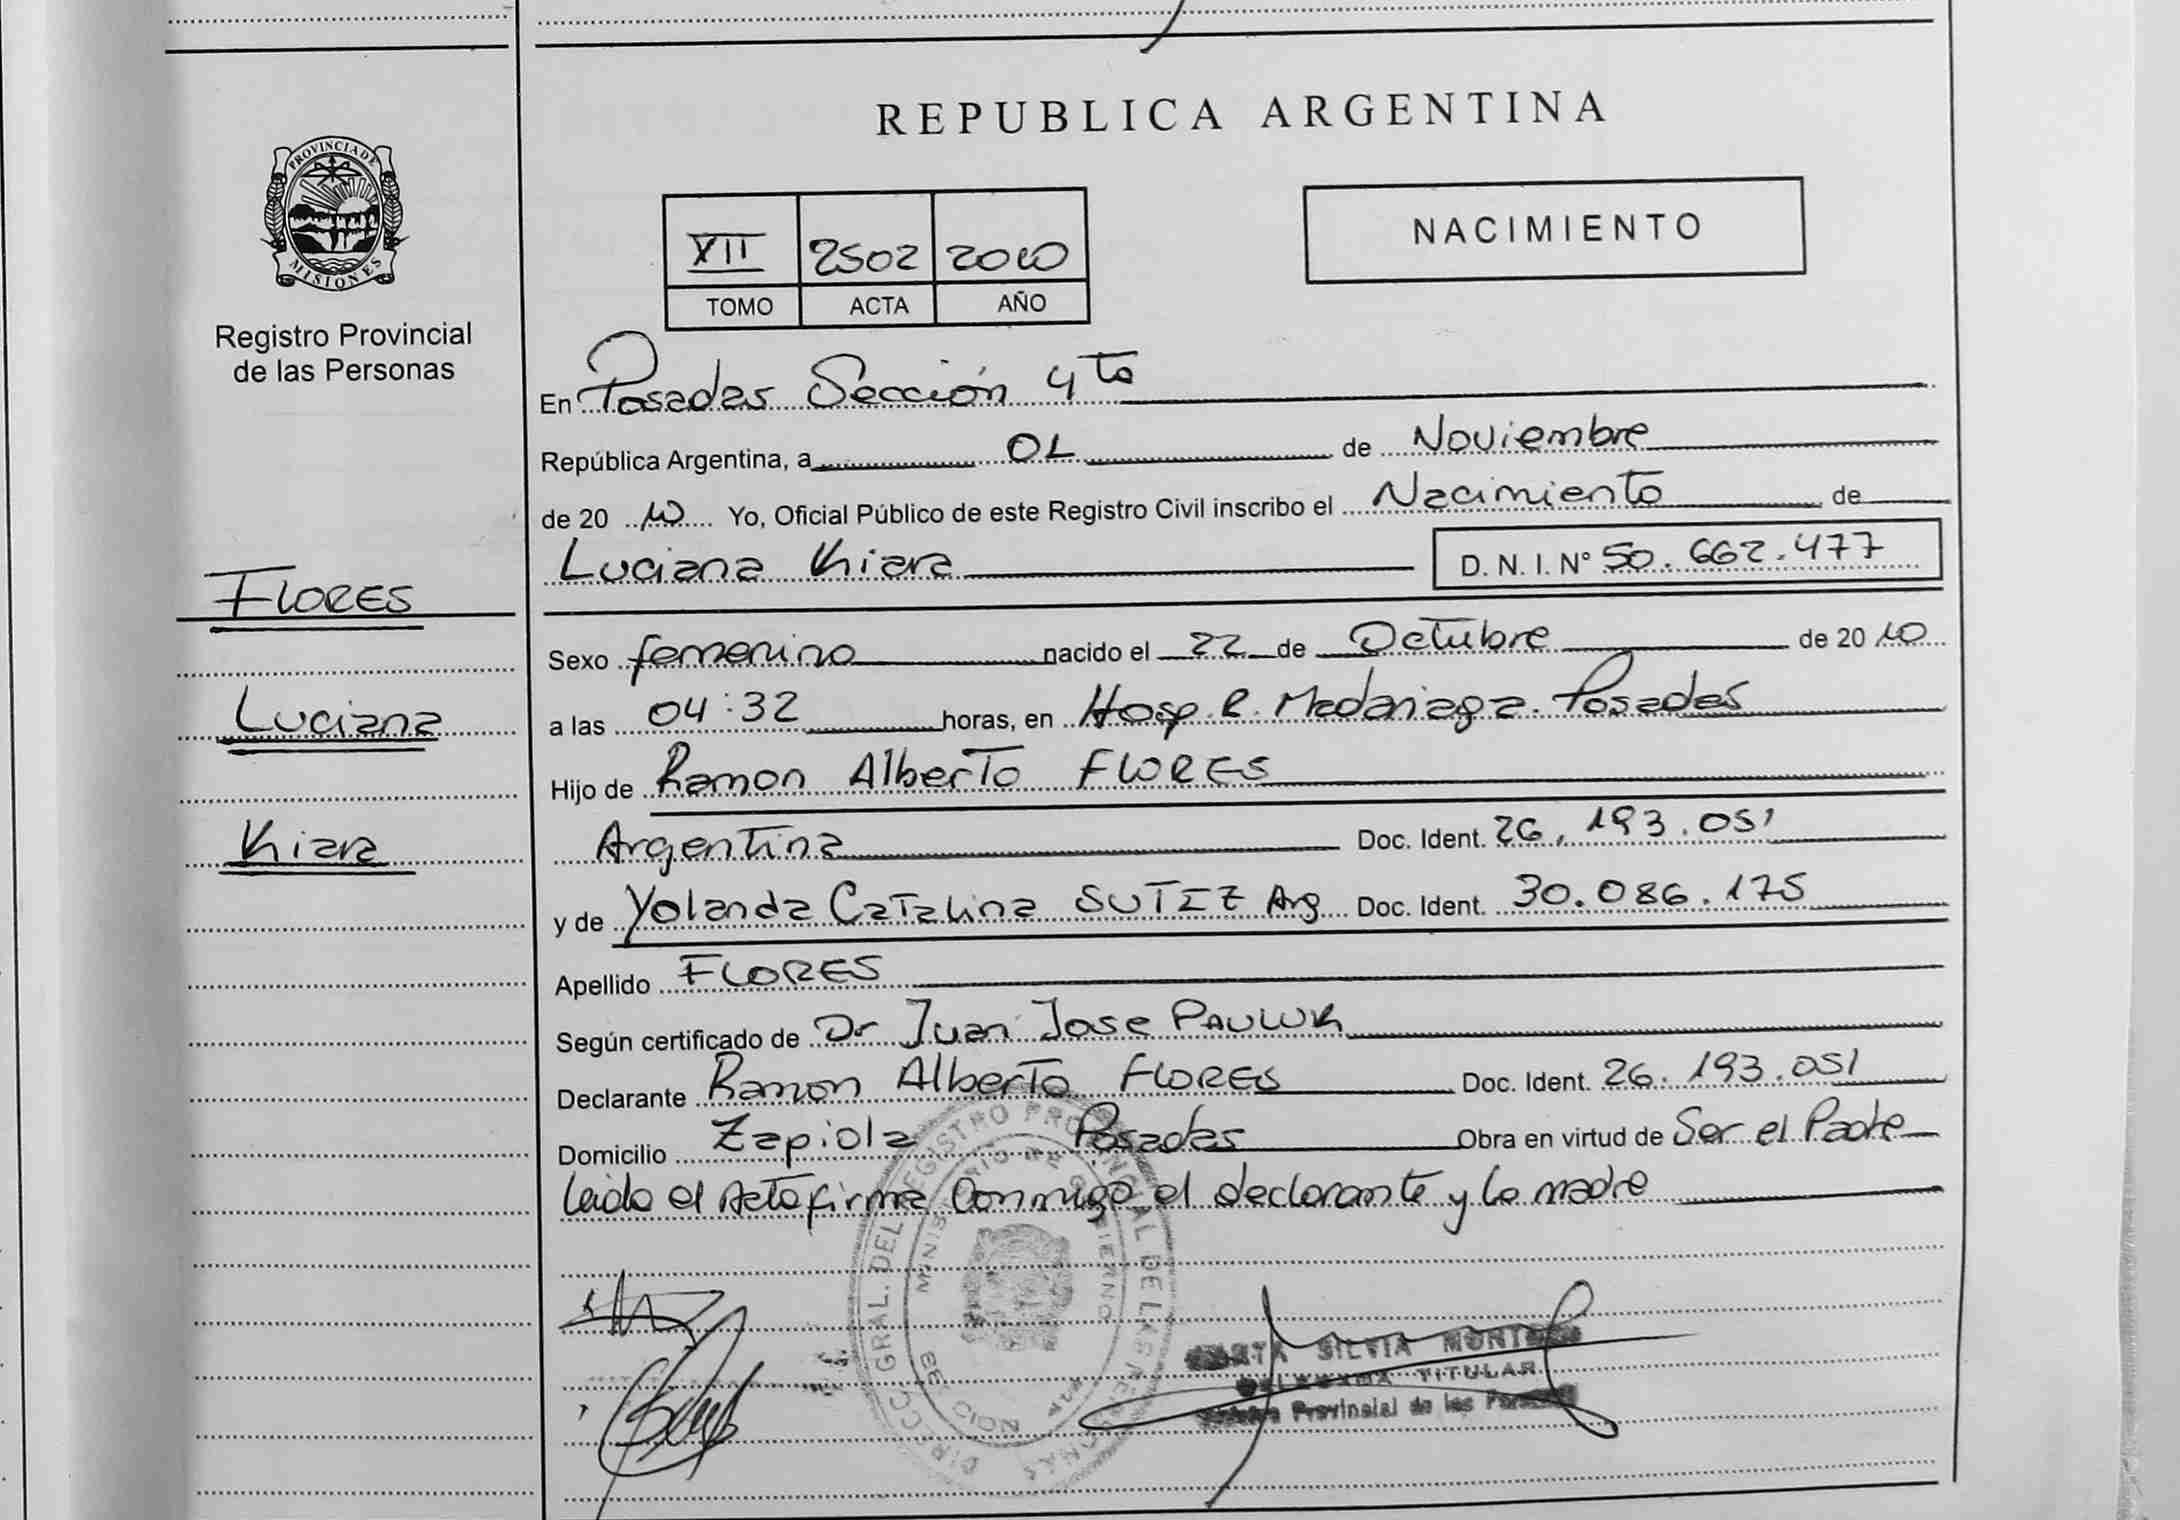 PROVINCIA DE
MISIONES
Registro Provincial
de las Personas
FLORES
Luciana
Kiara
REPUBLICA ARGENTINA
XII 2502 2010
TOMO ACTA AÑO
NACIMIENTO
En Posadas Sección 4to
República Argentina, a 02 de Noviembre
de 20 10 Yo, Oficial Público de este Registro Civil inscribo el Nacimiento de
Luciana Kiara D. N. I. N° 50.662.477
Sexo femenino nacido el 22 de Octubre de 20 10
a las 04:32 horas, en Hosp. R. Madariaga. Posadas
Hijo de Ramon Alberto FLORES
Argentina Doc. Ident. 26.193.051
y de Yolanda Catalina Arg Doc. Ident. 30.086.175
Apellido FLORES
Según certificado de Dr Juan Jose PAULUK
Declarante Ramon Alberto FLORES Doc. Ident. 26.193.051
Domicilio Zapiola Posadas Obra en virtud de Ser el Padre
Leida el Acta firma Conmigo el declarante y la madre
DIRECC. GRAL. DEL REGISTRO PROVINCIAL DE LAS PERSONAS
MINISTERIO DE GOBIERNO
SILVIA
TITULAR
Provincial de las